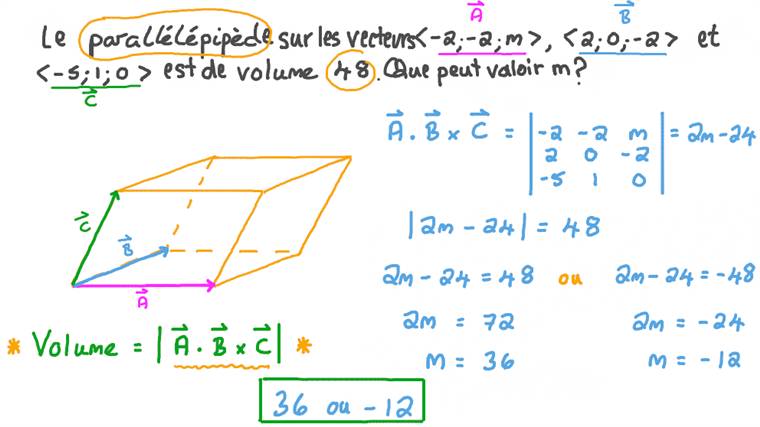 Le parallélépipède sur les vecteurs <-2;-2;m>, <2;0;-2> et
<-5;1;0> est de volume 48. Que peut valoir m?
A⃗
B⃗
C⃗
A⃗ . B⃗ × C⃗ = | -2 -2 m | = 2m-24
2 0 -2
-5 1 0
|2m-24| = 48
2m-24 = 48 ou 2m-24 = -48
2m = 72 2m = -24
m = 36 m = -12
C⃗
B⃗
A⃗
* Volume = | A⃗ . B⃗ × C⃗ | *
36 ou -12